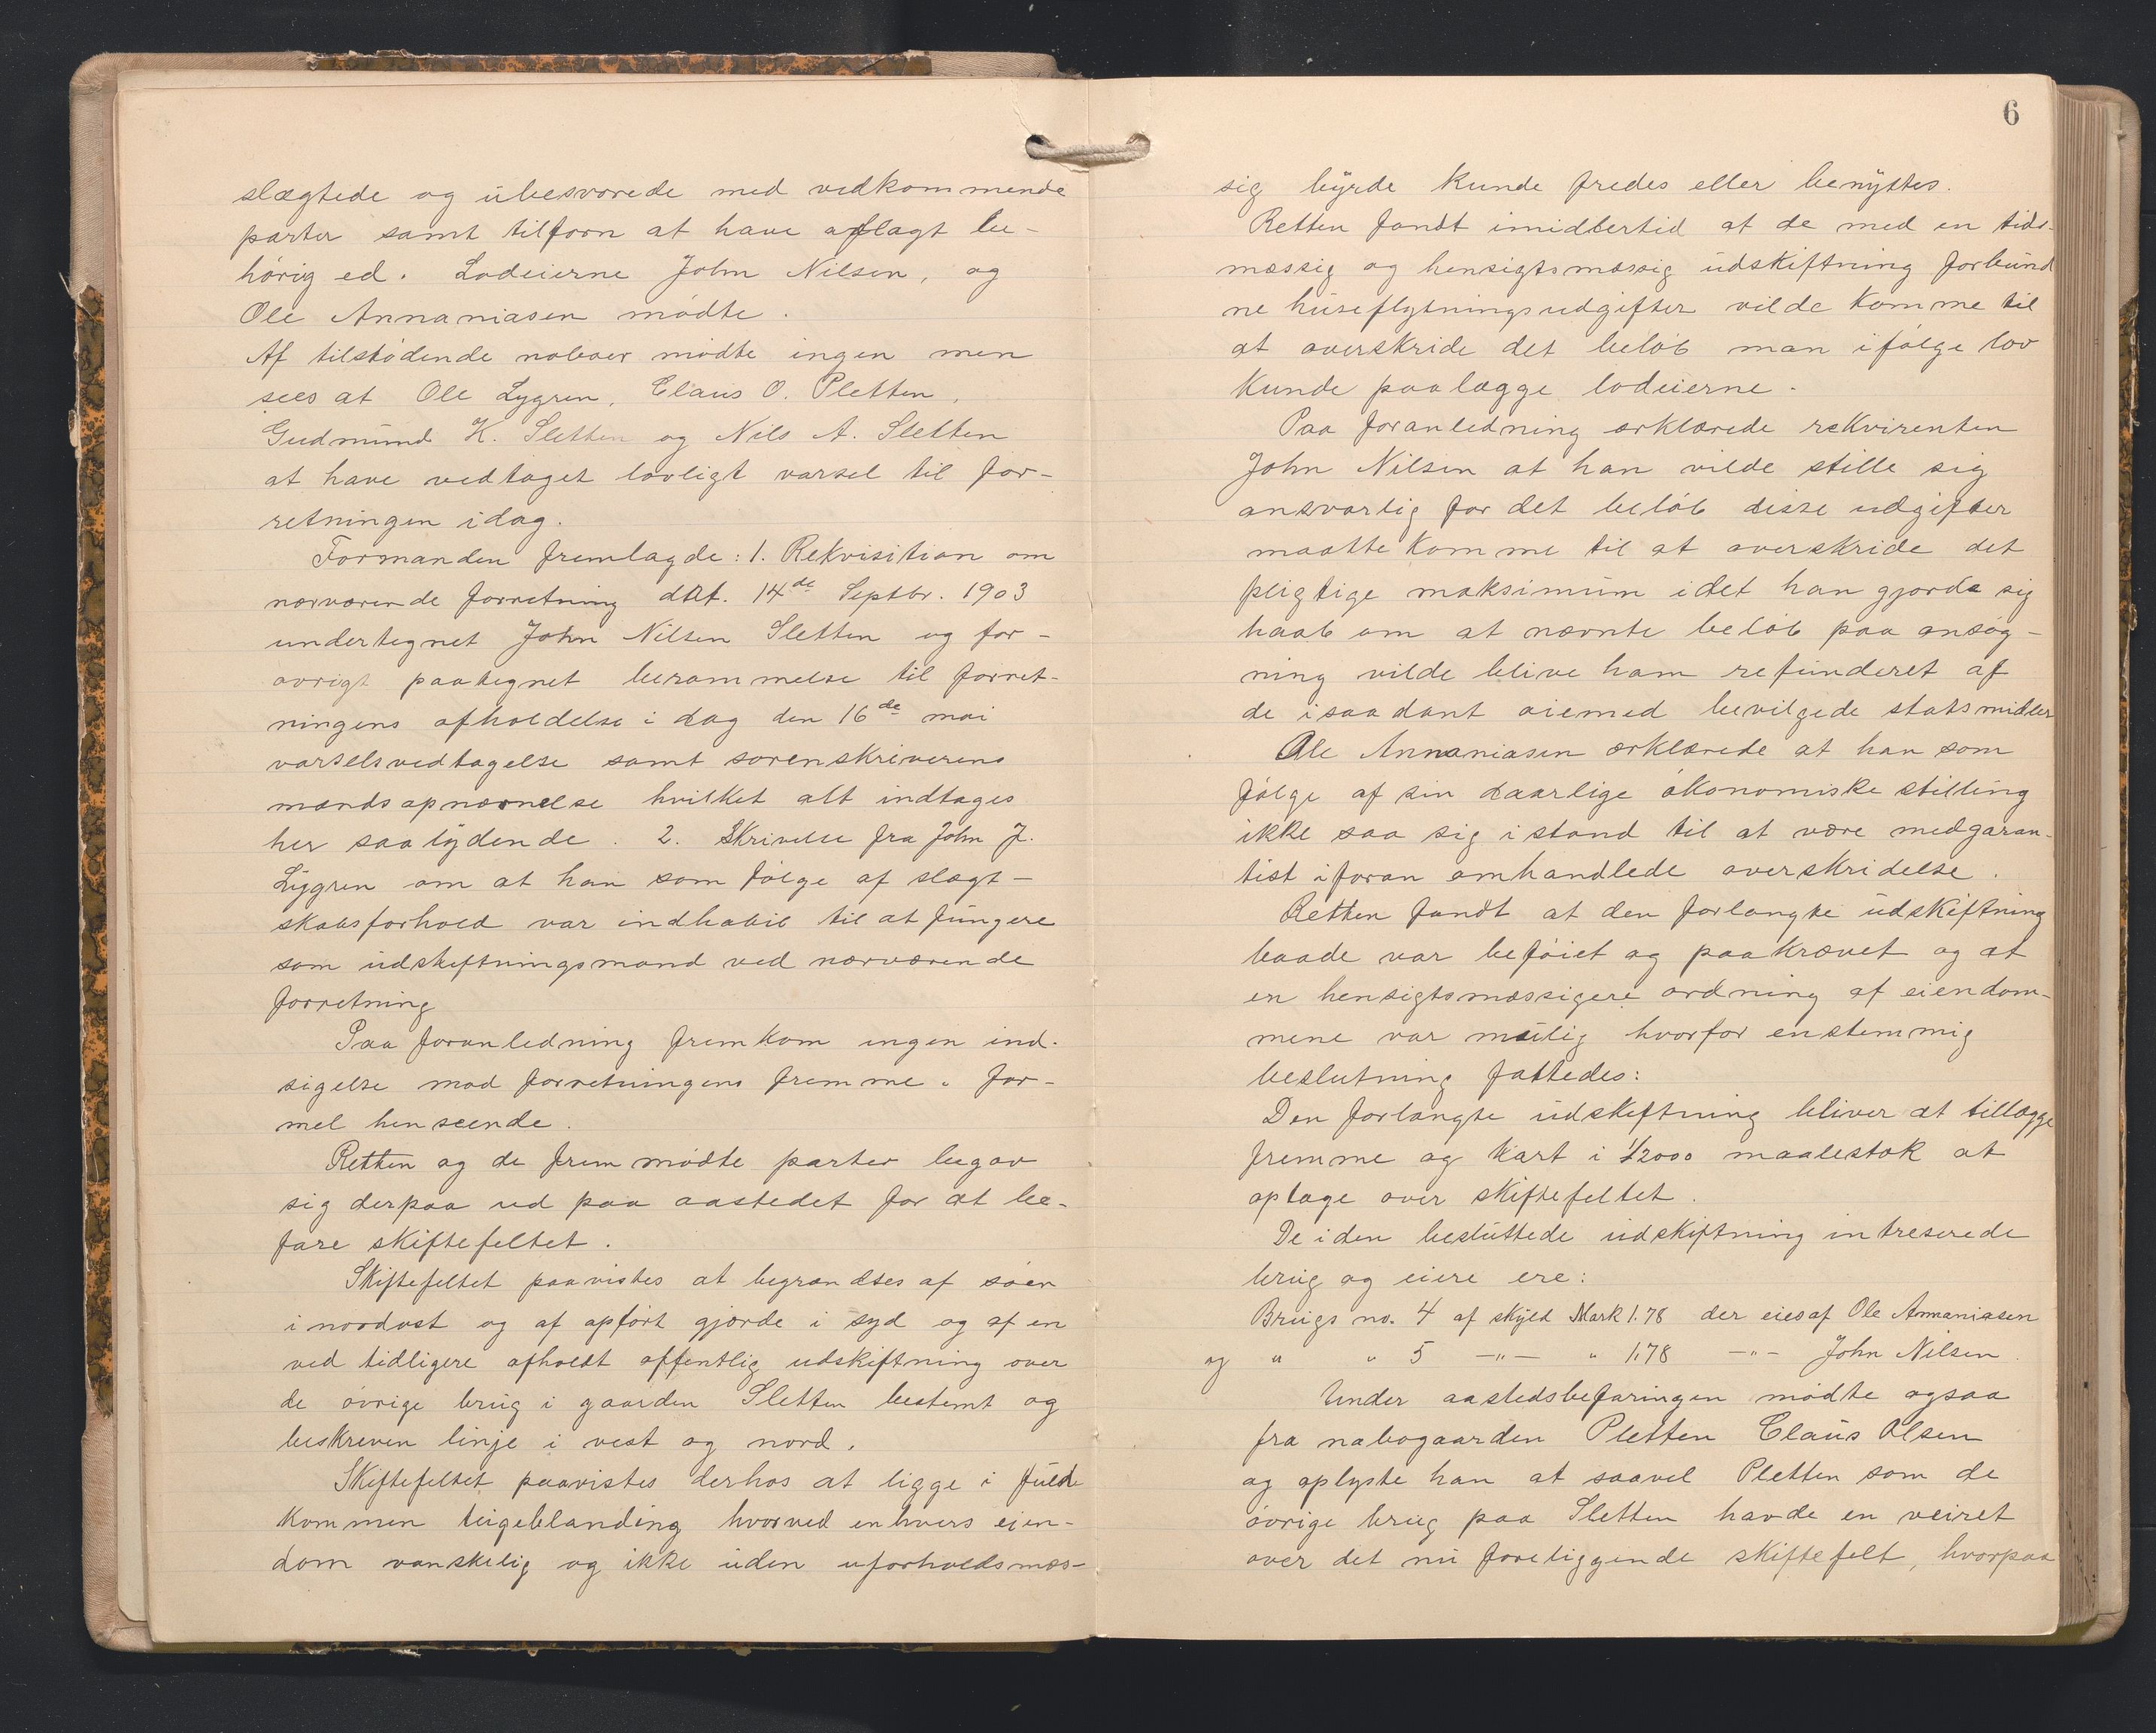 slægtede og ubesvogrede med vedkommende
parter samt tilforn at have aflagt be-
hörig ed. Lodeierne John Nilsen, og
Ole Annaniasen mödte.
Af tilstödende naboer mödte ingen men
sees at Ole Lygren, Claus O. Pletten,
Gudmund K. Sletten og Nils A. Sletten
at have vedtaget lovligt varsel til for-
retningen idag.
Formanden fremlagde: 1. Rekvisition om
nærværende forretning dat. 14de Septbr. 1903
undertegnet John Nilsen Sletten og for-
övrigt paategnet berammelse til forret-
ningens afholdelse i dag den 16de mai
varselsvedtagelse samt sorenskriverens
mandsopnævnelse hvilket alt indtages
her saalydende. 2. Skrivelse fra John J.
Lygren om at han som fölge af slægt-
skabsforhold var indhabil til at fungere
som udskiftningsmand ved nærværende
forretning
Paa foranledning fremkom ingen ind-
sigelse mod forretningens fremme i for-
mel henseende.
Retten og de fremmödte parter begav
sig derpaa ud paa aastedet for at be-
fare skiftefeltet.
Skiftefeltet paavistes at begrændses af söen
i nordöst og af opfört gjærde i syd og af en
ved tidligere afholdt offentlig udskiftning over
de övrige brug i gaarden Sletten bestemt og
beskreven linje i vest og nord.
Skiftefeltet paavistes derhos at ligge i fuld-
kommen teigeblanding hvorved enhvers eien-
dom vanskelig og ikke uden uforholdsmæs-
6
sig byrde kunde fredes eller benyttes.
Retten fandt imidlertid at de med en tids-
mæssig og hensigtsmæssig udskiftning forbund
ne huseflytningsudgifter vilde komme til
at overskride det belöb man ifölge lov
kunde paalægge lodeierne.
Paa foranledning erklærede rekvirenten
John Nilsen at han vilde stille sig
ansvarlig for det belöb disse udgifter
maatte komme til at overskride det
pligtige maksimum idet han gjorde sig
haab om at nævnte belöb paa ansög-
ning vilde blive ham refunderet af
de isaadant öiemed bevilgede statsmidler
Ole Annaniasen erklærede at han som
fölge af sin daarlige ökonomiske stilling
ikke saa sig istand til at være medgaran-
tist iforan omhandlede overskridelse.
Retten fandt at den forlangte udskiftning
baade var beföiet og paakrævet og at
en hensigtsmæssigere ordning af eiendom-
mene var mulig hvorfor enstemmig
beslutning fattedes:
Den forlangte udskiftning bliver at tillægge
fremme og kart i 1/2000 maalestok at
optage over skiftefeltet.
De iden besluttede udskiftning intreserede
brug og eiere ere:
Brugs no. 4 af skyld Mark 1.78 der eies af Ole Annaniasen
og " " 5 -"- " 1.78 -"- John Nilsen.
Under aastedsbefaringen mödte ogsaa
fra nabogaarden Pletten Claus Olsen
og oplyste han at saavel Pletten som de
övrige brug paa Sletten havde en veiret
over det nu foreliggende skiftefelt, hvorpaa